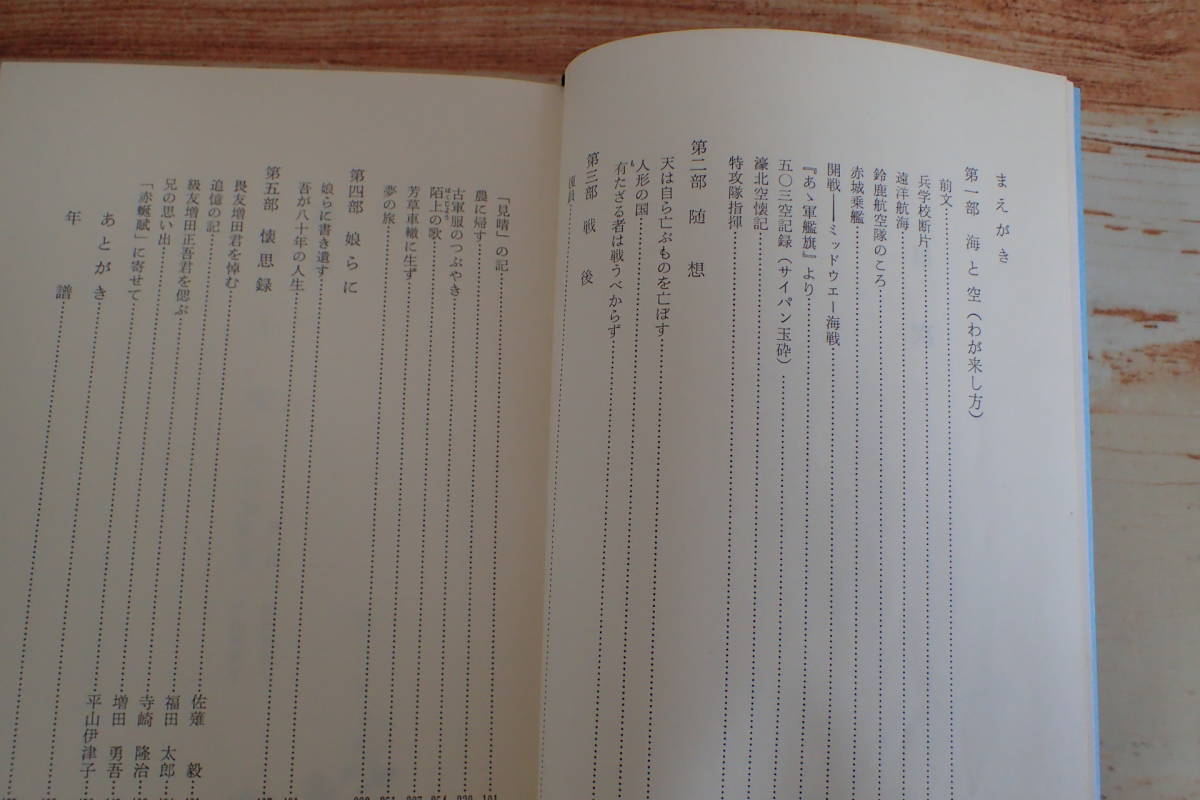 まえがき
第一部 海と空(わが来し方)
前文
兵学校断片
遠洋航海
鈴鹿航空隊のころ
赤城乗艦
開戦――ミッドウェー海戦
『あゝ軍艦旗』より
五〇三空記録(サイパン玉砕)
濠北空懐記
特攻隊指揮
第二部 随想
天は自ら亡ぶものを亡ぼす
人形の国
有たざる者は戦うべからず
第三部 戦後
復員
「見晴」の記
農に帰す
古軍服のつぶやき
陌上の歌
芳草車轍に生ず
夢の旅
第四部 娘らに
娘らに書き遺す
吾が八十年の人生
第五部 懐思録
畏友増田君を悼む 佐薙 毅
追憶の記 福田 太郎
級友増田正吾君を偲ぶ 寺崎 隆治
兄の思い出 増田 勇吾
「赤蜒賦」に寄せて 平山伊津子
あとがき
年譜